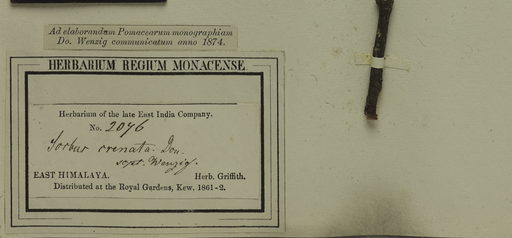 Ad elaborandum Pomacearum monographiam
Do. Wenzig communicatum anno 1874.
HERBARIUM REGIUM MONACENSE.
Herbarium of the late East India Company.
No. 2076
Sorbus crenata. Don.
scps. Wenzig.
EAST HIMALAYA. Herb. Griffith.
Distributed at the Royal Gardens, Kew. 1861-2.